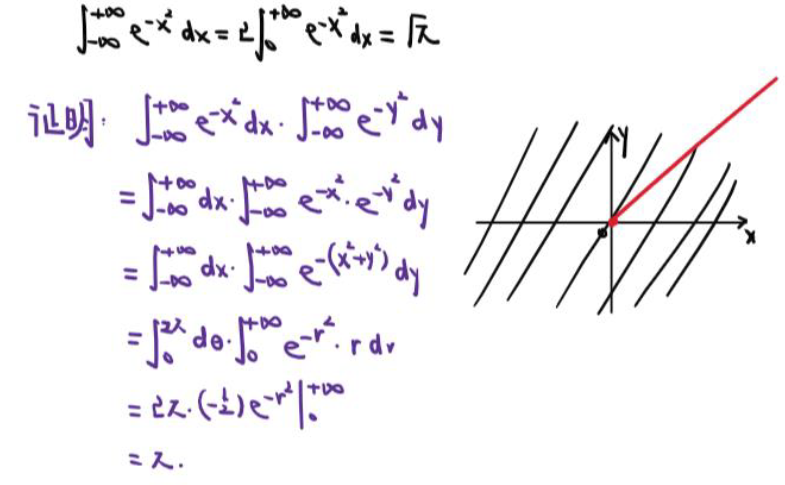 ∫_{-∞}^{+∞} e^{-x²} dx = 2∫_{0}^{+∞} e^{-x²} dx = √π
证明: ∫_{-∞}^{+∞} e^{-x²} dx · ∫_{-∞}^{+∞} e^{-y²} dy
= ∫_{-∞}^{+∞} dx · ∫_{-∞}^{+∞} e^{-x²} · e^{-y²} dy
= ∫_{-∞}^{+∞} dx · ∫_{-∞}^{+∞} e^{-(x²+y²)} dy
= ∫_{0}^{2π} dθ · ∫_{0}^{+∞} e^{-r²} · r dr
= 2π · (-½) e^{-r²} |_{0}^{+∞}
= π.
y
x